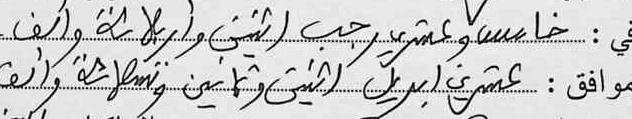 في : خامس وعشري رجب اثنين وأربعمائة وألف
موافق : عشرين ابريل اثنين وثمانين وتسعمائة وألف